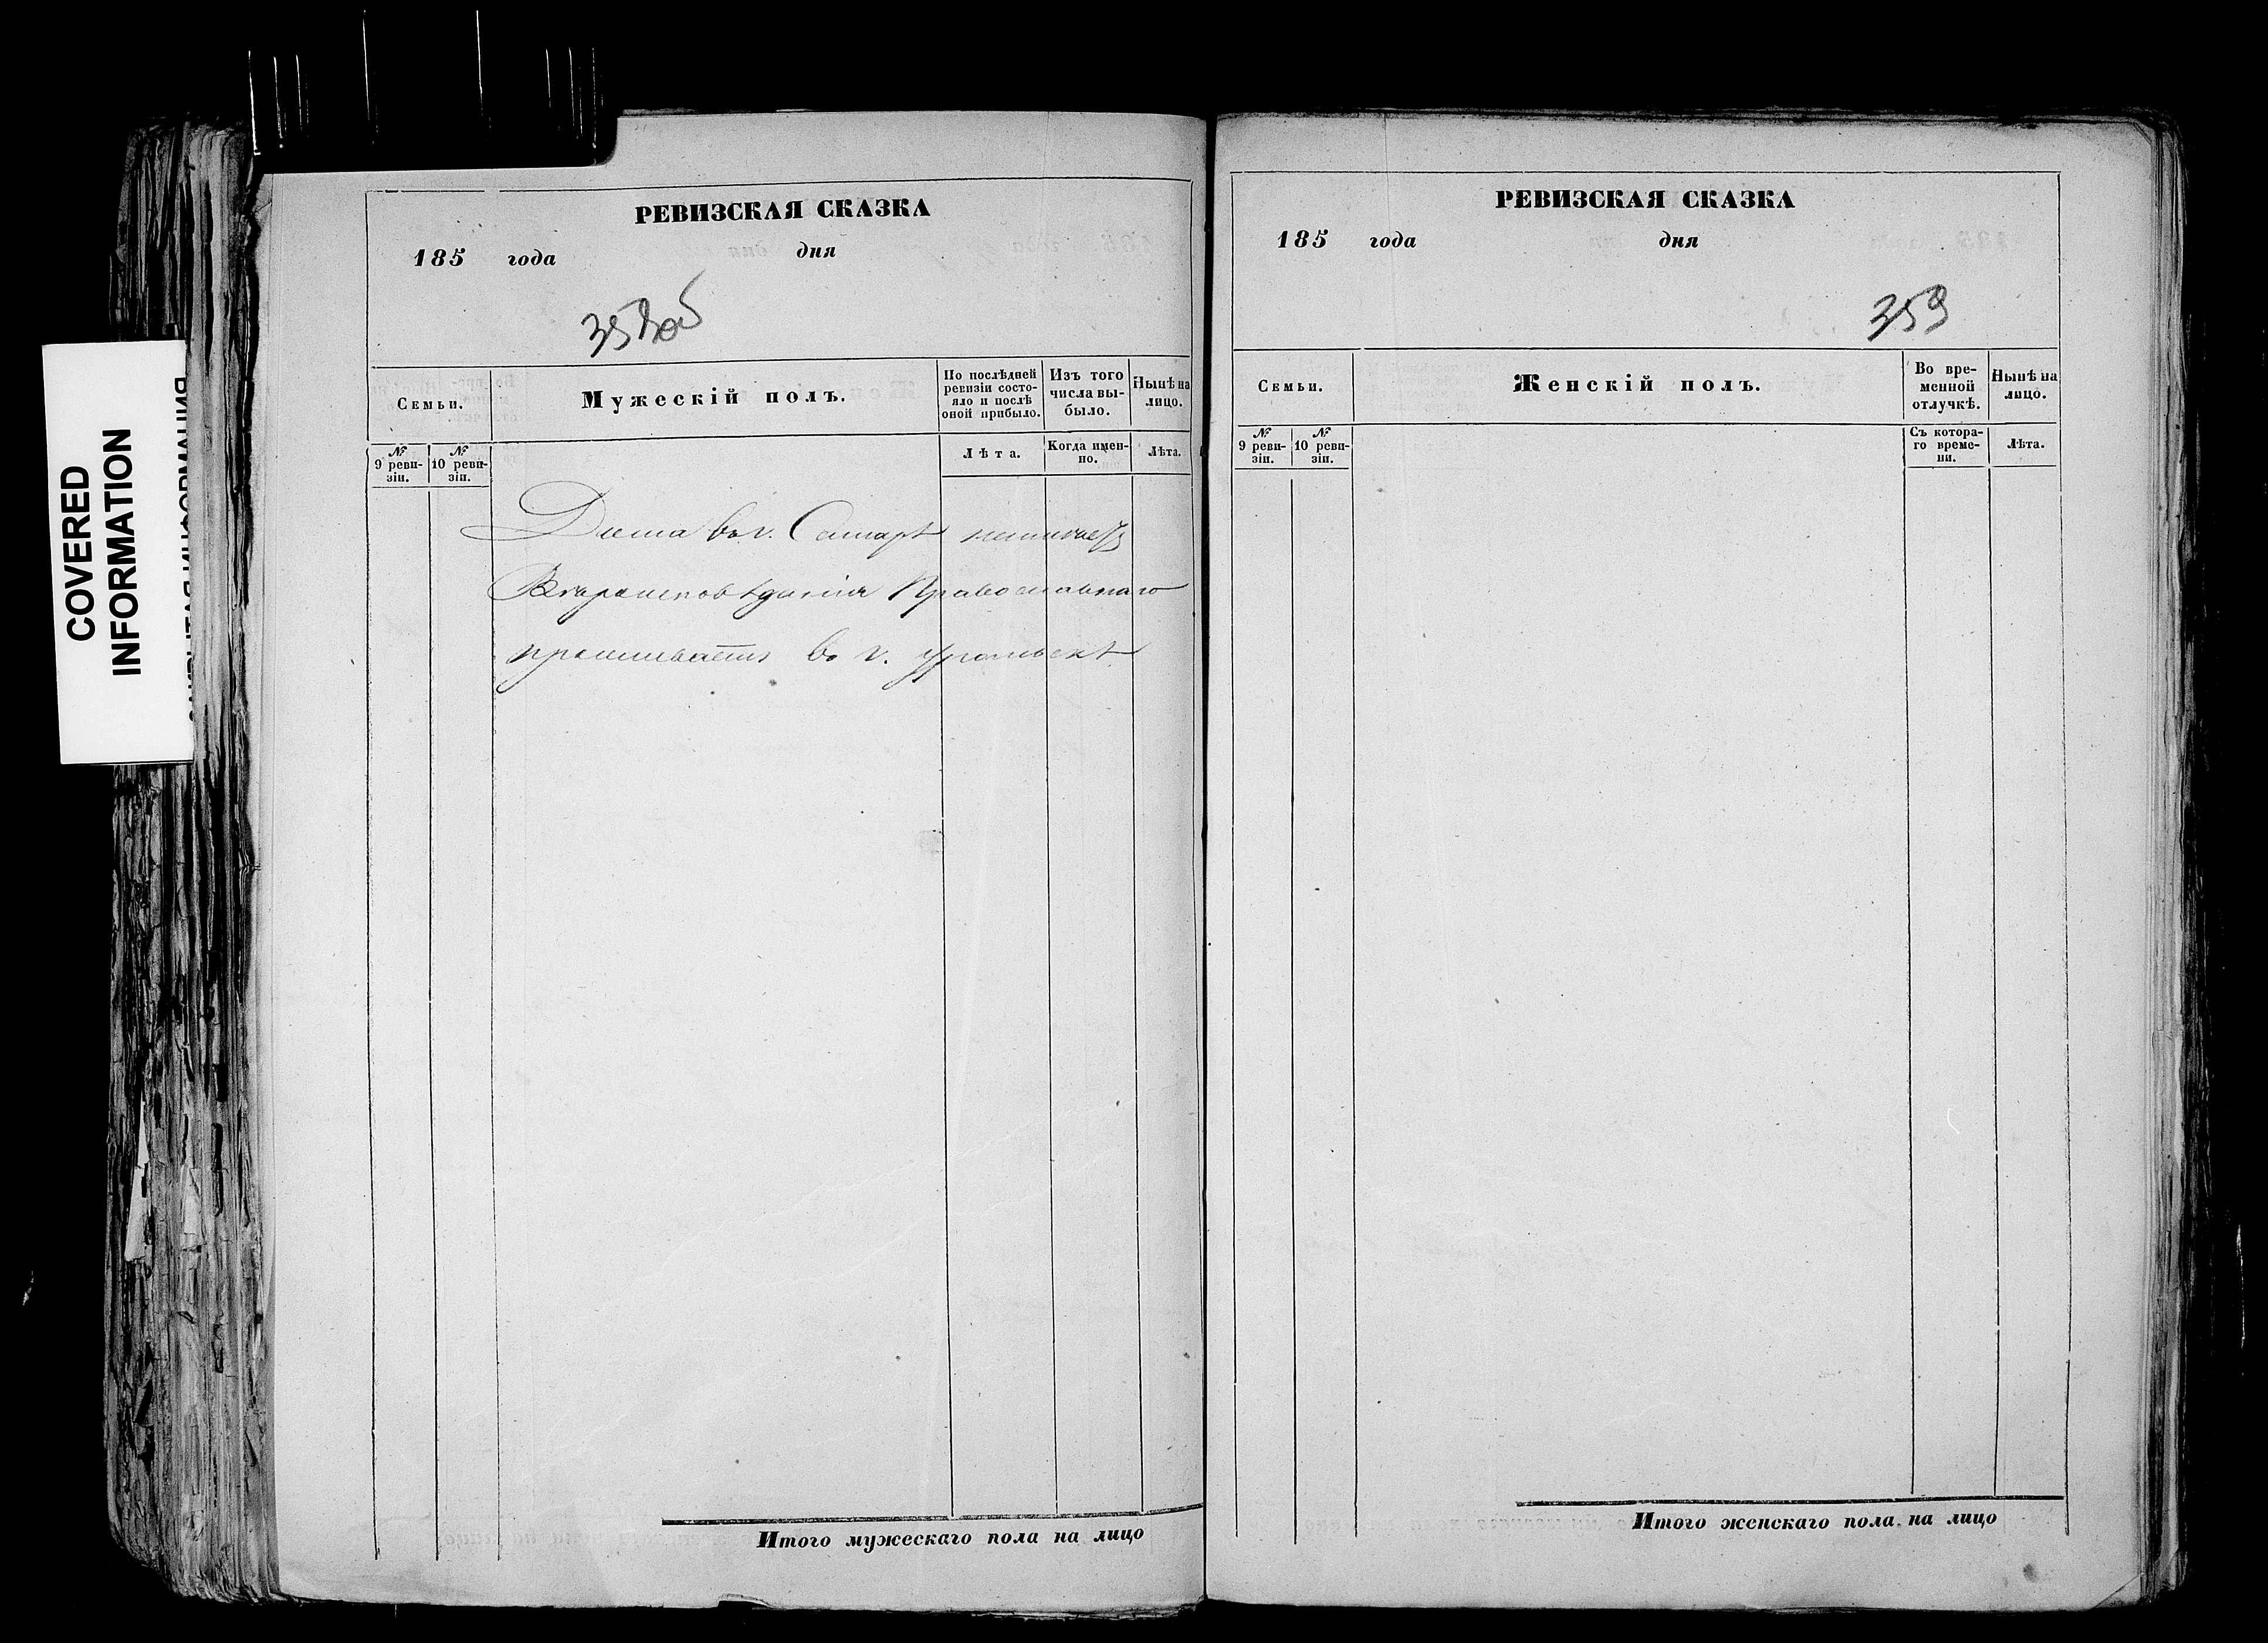 COVERED
INFORMATION
РЕВИЗСКАЯ СКАЗКА
185 года дня
358об
Семьи.
Мужескій полъ.
По послѣдней ревизіи состояло и послѣ оной прибыло.
Изъ того числа выбыло.
Нынѣ на лицо.
№ 9 ревизіи.
№ 10 ревизіи.
Лѣта.
Когда именно.
Лѣта.
Дома въ г. Самарѣ неимѣетъ
Вѣроисповѣданія Православнаго
проживаетъ въ г. Уральскѣ
Итого мужескаго пола на лицо
РЕВИЗСКАЯ СКАЗКА
185 года дня
359
Семьи.
Женскій полъ.
Во временной отлучкѣ.
Нынѣ на лицо.
№ 9 ревизіи.
№ 10 ревизіи.
Съ котораго времени.
Лѣта.
Итого женскаго пола на лицо